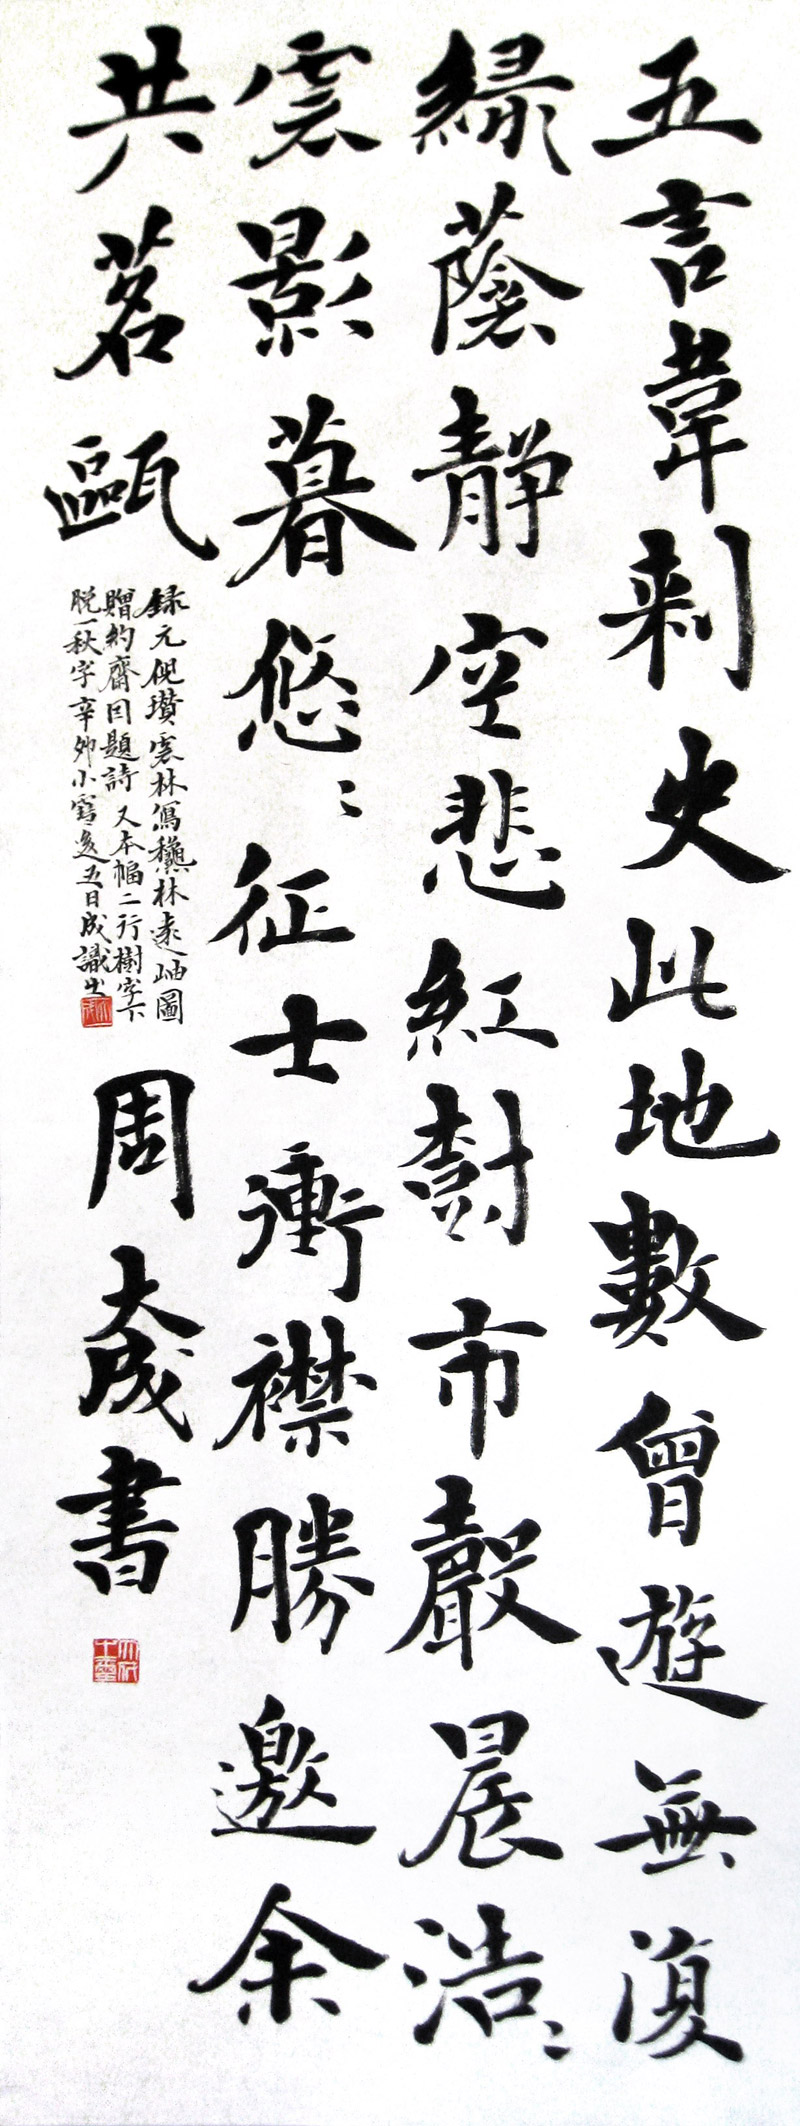 五言韋刺史此地數曾遊無復
綠蔭靜空悲紅樹市聲晨浩〻
雲影暮悠〻征士衝襟勝邀余
共茗甌
錄元倪瓚雲林寫秋林遠岫圖
贈約齋因題詩 又本幅二行樹字下
脫一秋字辛卯小雪後五日成識也
周大成書